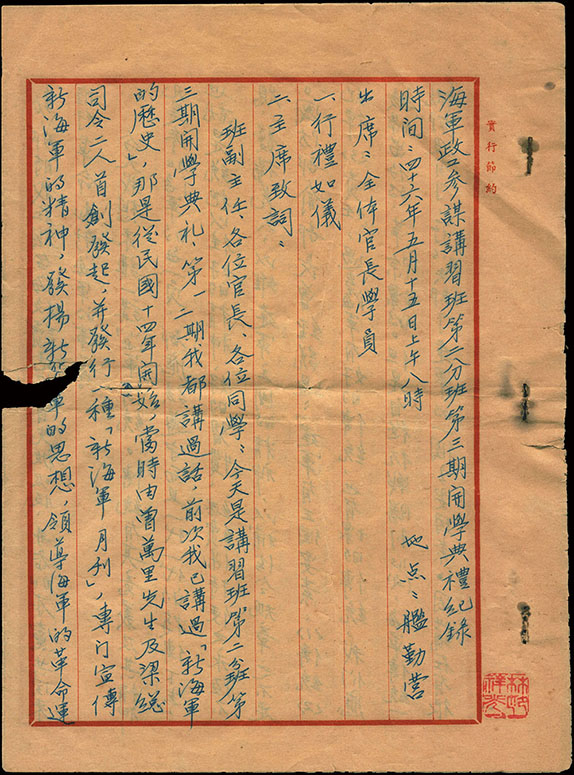 實行節約
海軍政工參謀講習班第二分班第三期開學典禮紀錄
時間：四十六年五月十五日上午八時　地点：艦勤營
出席：全体官長學員
一行禮如儀
二主席致詞：
班副主任、各位官長、各位同學：今天是講習班第二分班第
三期開學典礼、第一二期我都講過話 前次我已講過「新海軍
的歷史」，那是從民國十四年開始 當時由曾萬里先生及梁總
司令二人首創發起，并發行一種「新海軍月刊」，專门宣傳
新海軍的精神，發揚新海軍的思想，領導海軍的革命運